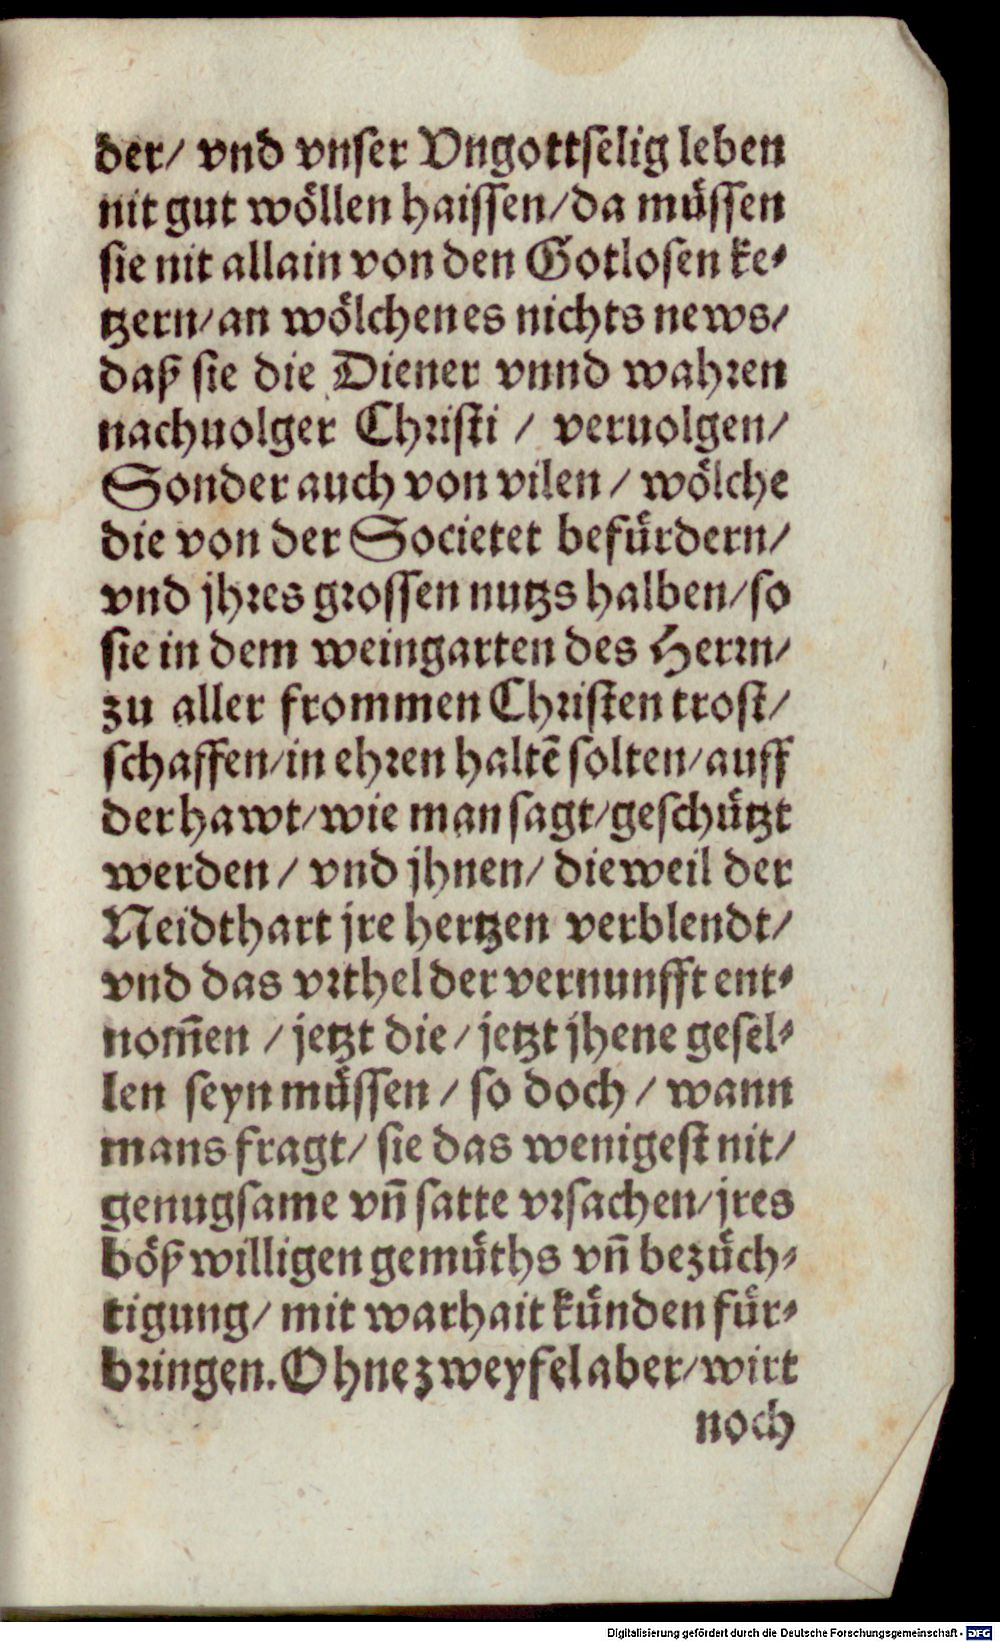 der/ vnd vnser Vngottselig leben
nit gut wöllen haissen/da müssen
sie nit allain von den Gotlosen ke-
tzern/an wölchen es nichts news/
daß sie die Diener vnnd wahren
nachuolger Christi / veruolgen/
Sonder auch von vilen / wölche
die von der Societet befürdern/
vnd jhres grossen nutzs halben/so
sie in dem weingarten des Herrn/
zu aller frommen Christen trost/
schaffen/in ehren haltē solten/auff
der hawt/wie man sagt/geschützt
werden / vnd jhnen/ dieweil der
Neidthart jre hertzen verblendt/
vnd das vrthel der vernunfft ent-
nom̃en / jetzt die/ jetzt jhene gesel-
len seyn müssen / so doch / wann
mans fragt/ sie das wenigest nit/
genugsame vñ satte vrsachen/jres
böß willigen gemüths vñ bezüch-
tigung/ mit warhait künden für-
bringen. Ohne zweyfel aber/wirt
noch
Digitalisierung gefördert durch die Deutsche Forschungsgemeinschaft - DFG